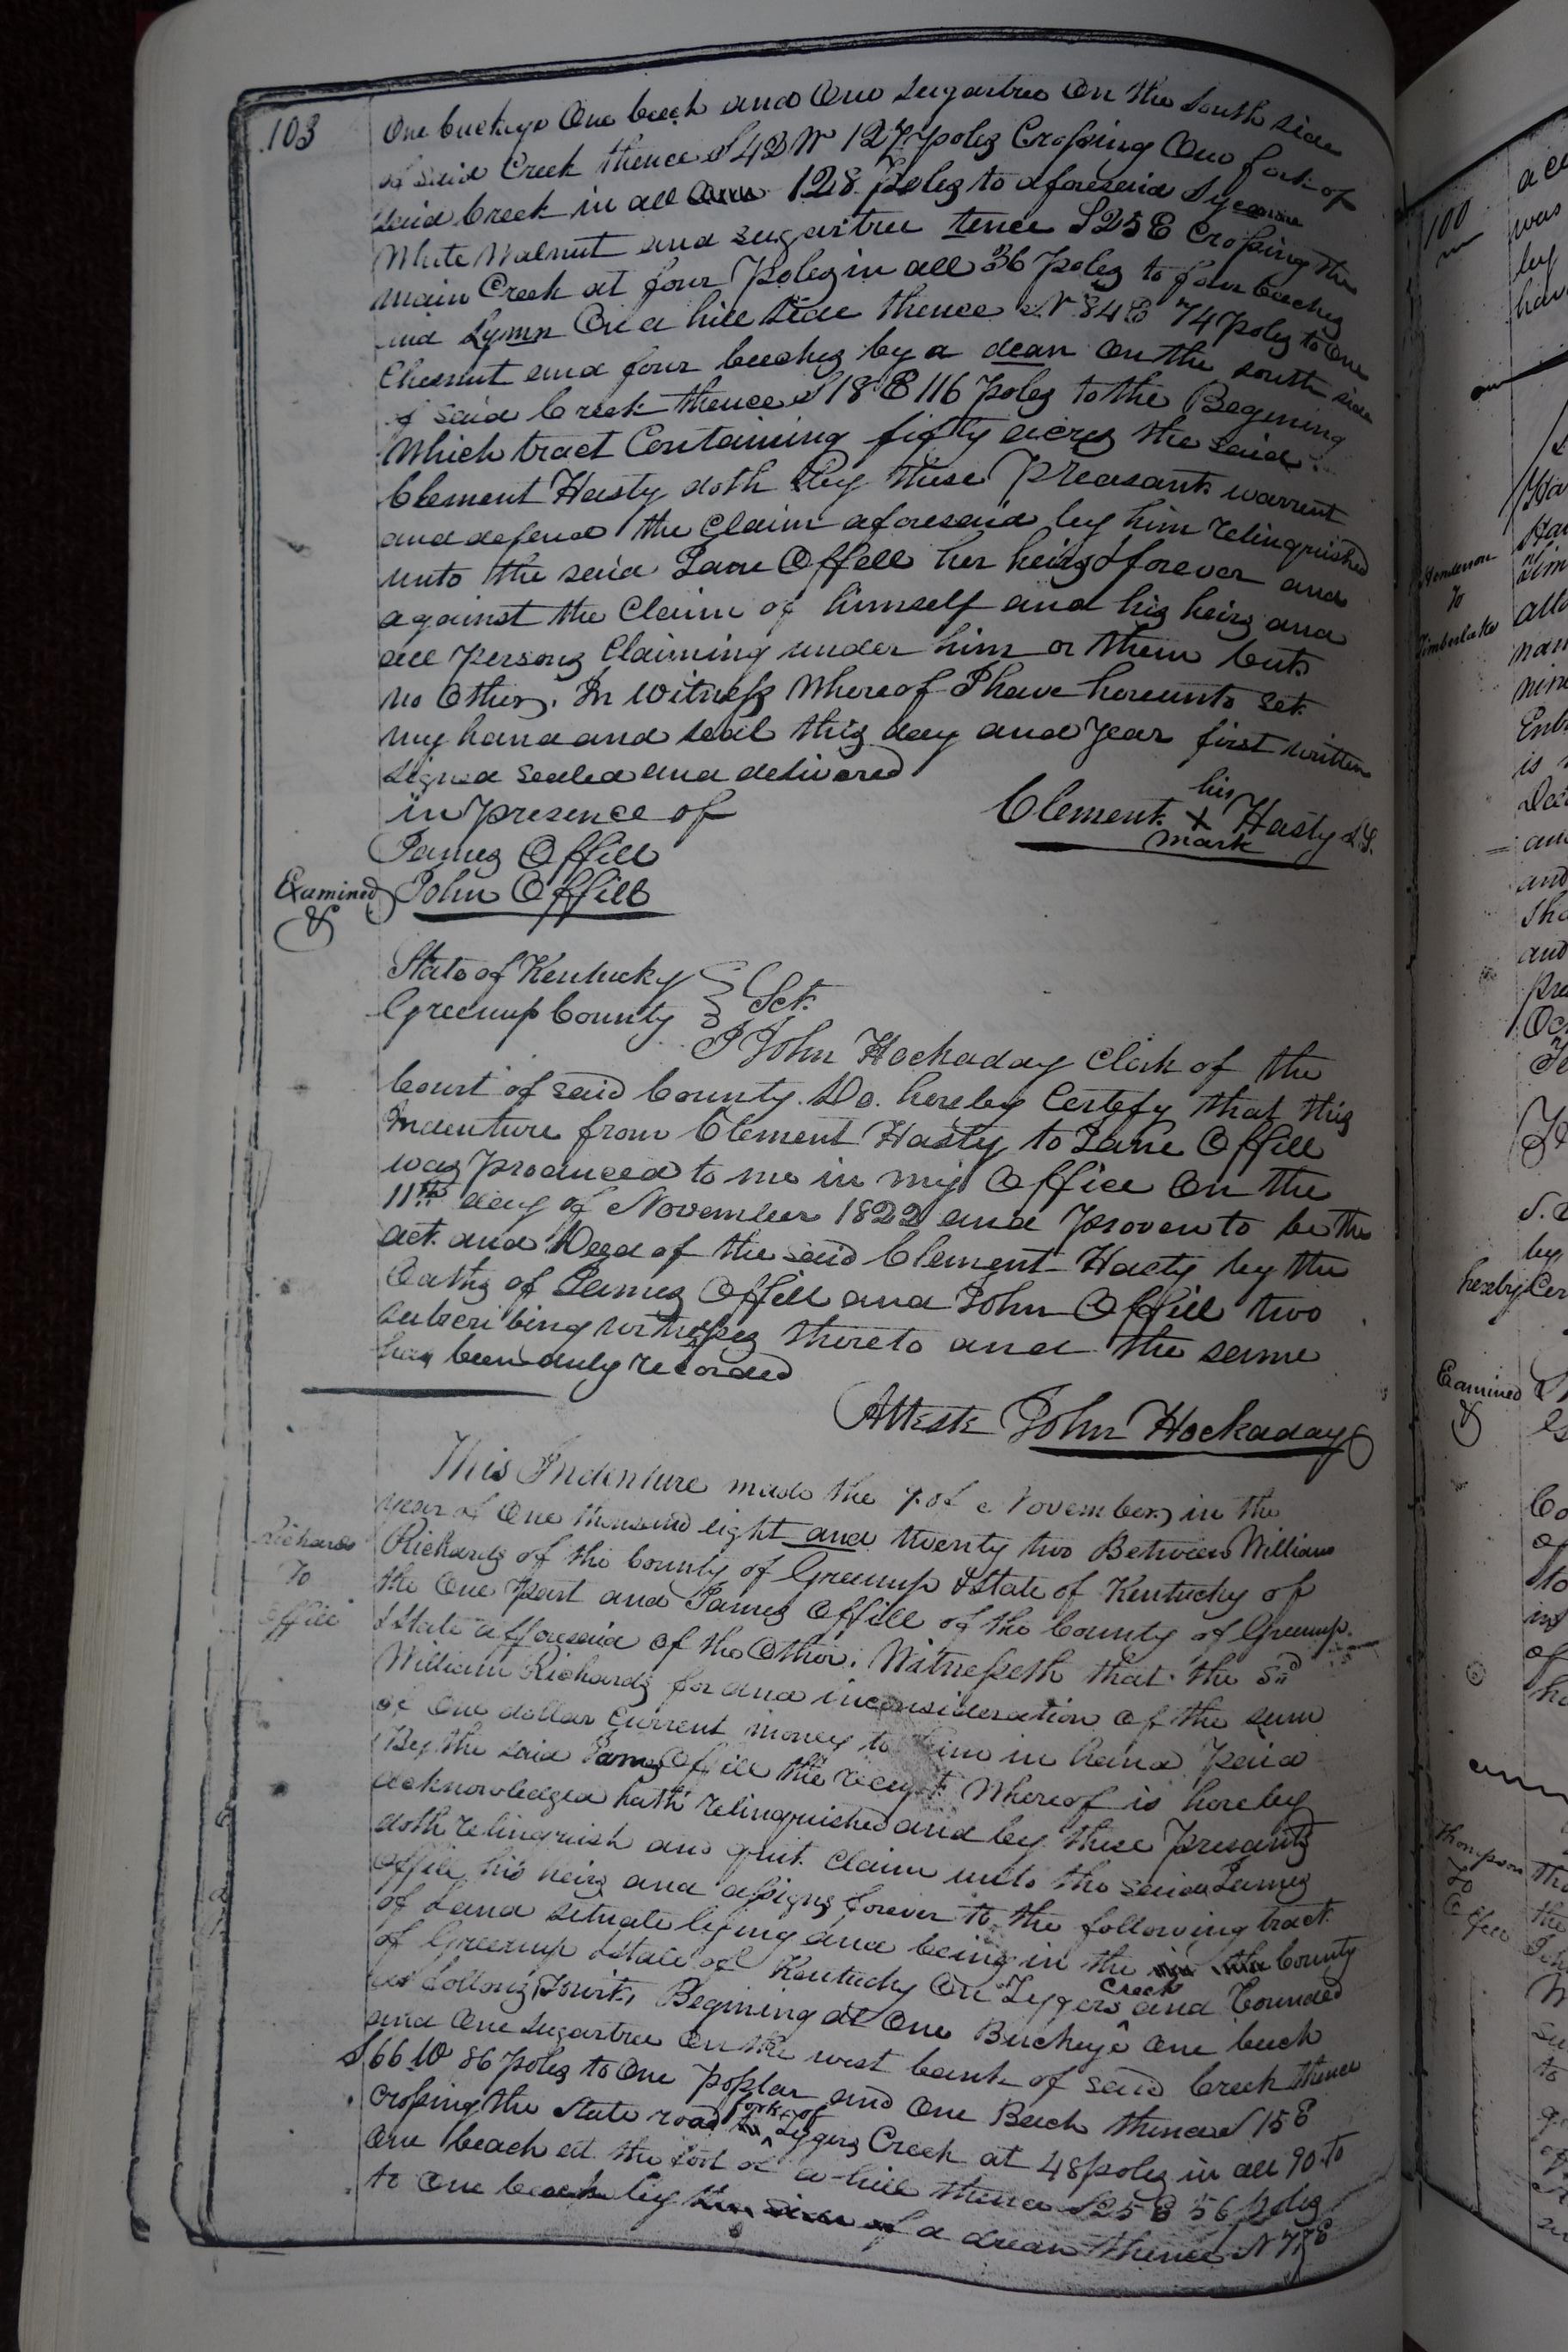 103
One buckeye One beech and One Sugartree On the South side
of said Creek thence S 42 W 127 poles Crossing One fork of
said Creek in all 128 Poles to aforesaid Sycamore
White Walnut and sugartree tence S 25 E Crossing the
main Creek at four Poles in all 36 poles to four beeches
and Lynn On a hill side thence N 84 E 74 poles to One
Chesnut and four beeches by a dean On the south side
of said Creek thence S 18 E 116 poles to the Begening
Which tract Containing fifty acres the said
Clement Hasty doth By these Preasants warrent
and defend the Claim aforesaid by him relinquished
unto the said Jane Offell her heirs & forever and
against the Claim of himself and his heirs and
all Persons Claiming under him or them but
no Others. In Witness Whereof I have hereunto set
my hand and seal this day and year first written
Signed sealed and delivered
in presence of
his
Clement X Hasty L.S.
mark
James Offill
Examined John Offill
&
State of Kentucky
Greenup County } Sct.
I John Hockaday Clerk of the
Court of said County Do hereby Certefy that this
Indenture from Clement Hasty to Jane Offill
was Produced to me in my Office On the
11th day of November 1822 and Proven to be the
act and Deed of the said Clement Hasty by the
Oaths of James Offill and John Offill two
subscribing witnesses thereto and the same
has been duly recorded
Atteste John Hockaday
This Indenture made the 7 of November in the
year of One thousand eight and twenty two Between William
Richards
To
Offill
Richards of the County of Greenup & State of Kentucky of
the One Part and James Offill of the County of Greenup
& State afforesaid of the Other. Witnesseth that the Sd
William Richards for and inconsideration of the sum
of One dollar Current money to him in hand Paid
By the said James Offill the receipt Whereof is hereby
acknowledged hath relinquished and by these Presants
doth relinquish and quit Claim unto the said James
Offill his heirs and assigns forever to the following tract
of Land situate lying and being in the County
of Greenup & State of Kentucky On Tygers Creek and bounded
as follows Towit, Begining at One Buckeye One beech
and One Sugartree On the west bank of said Creek thence
S 66 W 86 poles to One Poplar and One Beech thence S 15 E
Crossing the State road forks of Tygers Creek at 48 poles in all 90 to
One beach at the foot of a hill thence S 25 E 56 poles
to One beach by a drean thence N 77 E
100
Henderson
To
Timberlake
hereby Cer
Examined
&
Thompson
To